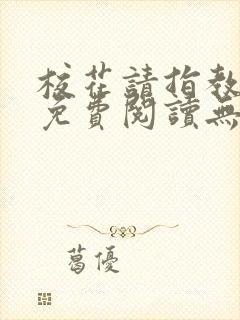 校花請指教
免費閱讀無
葛優